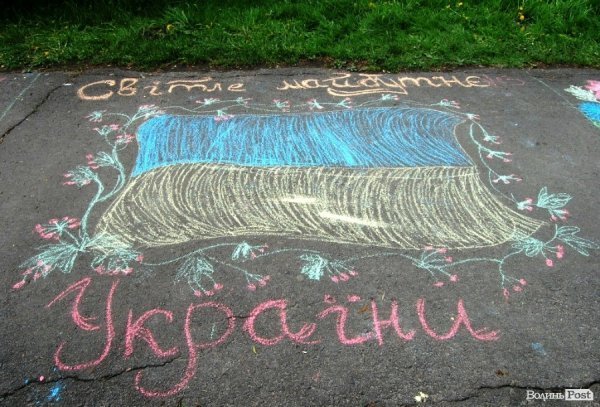 Світле майбутнє
України
ВолиньPost